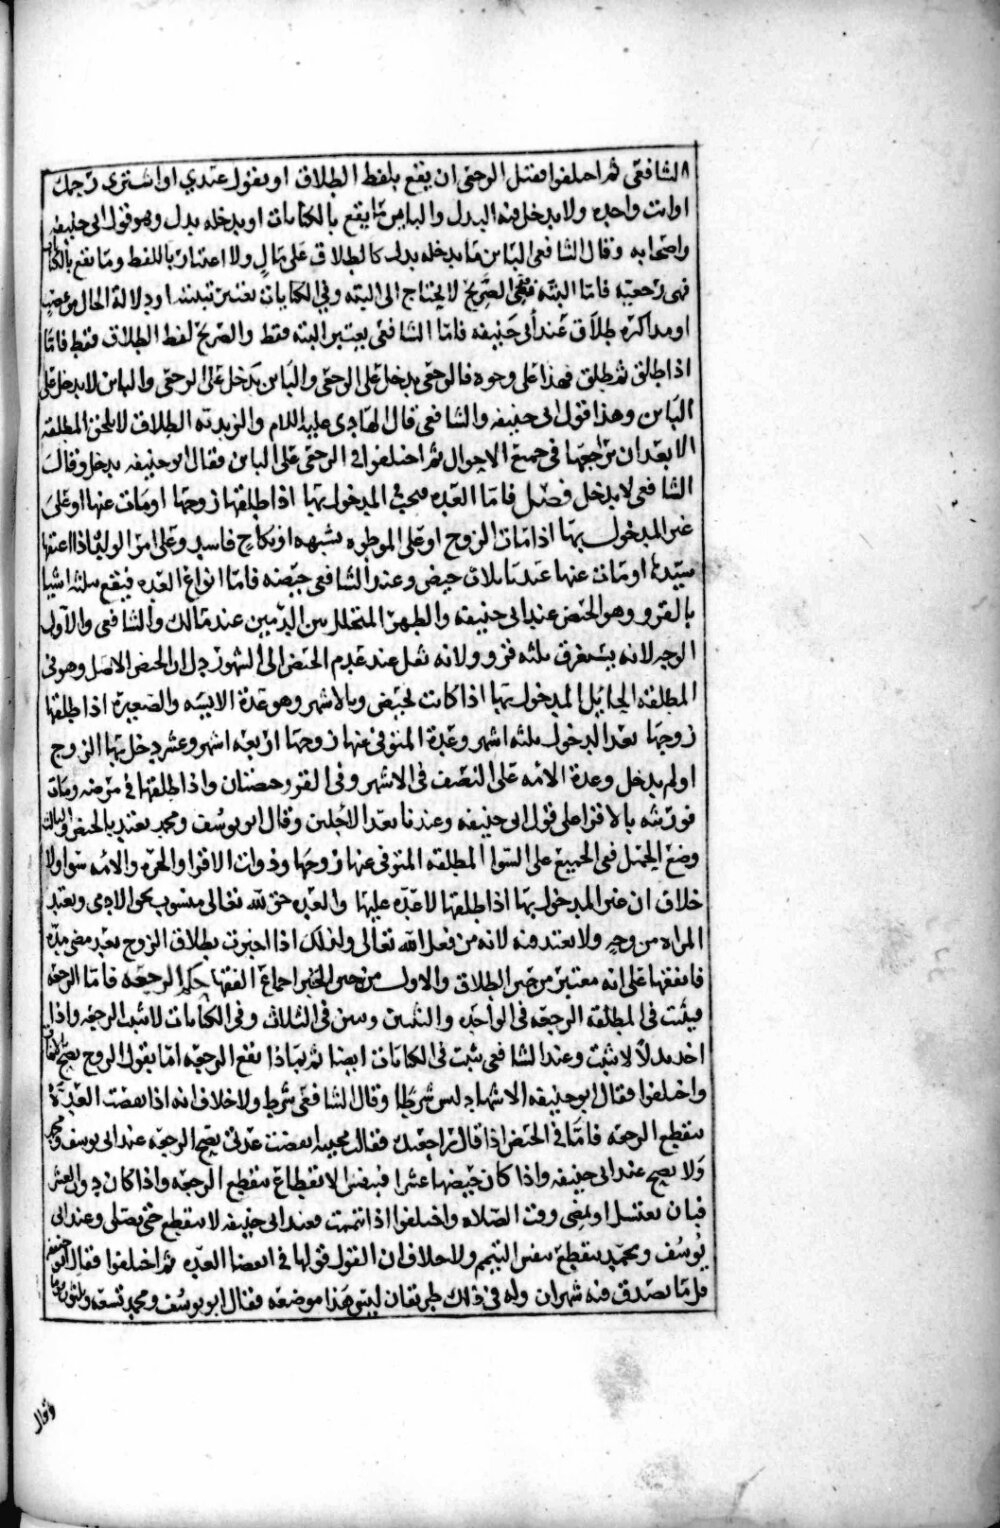 الشافعي ثم اختلفوا فقيل الرجعي ان يقع بلفظ الطلاق او يقول عتدي او اشتبري رحمك
او انت واحده ولا يدخل فيه البدل والباين ما يقع بالكنايات او يدخله بدل وهو قول ابي حنيفه
واصحابه وقال الشافعي الباين ما يدخله بدل كالطلاق على مال ولا اعتبار باللفظ وما يقع بالكنايات
فهي رجعيه فاما النيه ففي الصريح لا يحتاج الى النيه وفي الكنايات تعتبر نيته او دلالة الحال من غضب
او مذاكرة طلاق عند أبي حنيفه فاما الشافعي يعتبر النيه فقط والصريح لفظ الطلاق فقط فاما
اذا طلق ثم طلق فهذا على وجوه فالرجعي يدخل على الرجعي والباين يدخل على الرجعي والباين لا يدخل على
الباين وهذا قول ابي حنيفه والشافعي قال الهادي عليه السلام والزيديه الطلاق لا يلحق المطلقه
الا بعد ان يراجعها في جميع الاحوال ثم اختلفوا في الرجعي على الباين فقال ابو حنيفه يدخل وقال
الشافعي لا يدخل فصل فاما العده فتجب في المدخول بها اذا طلقها زوجها او مات عنها او على
غير المدخول بها اذا مات الزوج او على الموطوه بشبهه او نكاح فاسد وعلى ام الولد اذا اعتقها
سيدها او مات عنها عندنا بثلاث حيض وعند الشافعي حيضه فاما انواع العده فيقع بثلثه اشيا
بالقرو وهو الحيض عند ابي حنيفة والطهر المتخلل بين الدمين عند مالك والشافعي والاول
الوجه لانه يستغرق ثلثه قرو ولانه نقل عند عدم الحيض الى الشهور دل ان الحيض الاصل وهو في
المطلقه الحايل المدخول بها اذا كانت تحيض وبالاشهر وهو عدة الايسه والصغيرة اذا طلقها
زوجها بعد الدخول ثلثه اشهر وعدة المتوفى عنها زوجها اربعه اشهر وعشر دخل بها الزوج
او لم يدخل وعدة الامه على النصف في الاشهر وفي القرو حيضتان واذا طلقها في مرضه ومات
فورثته بالاقرا على قول ابي حنيفه وعندنا بعد الاجلين وقال ابو يوسف ومحمد تعتد بالحيض والثالث
وضع الحمل ففي الجميع على السوا المطلقه المتوفى عنها زوجها وذوات الاقرا والحره والامه سوا ولا
خلاف ان غير المدخول بها اذا طلقها لا عده عليها والعده حق لله تعالى منسوب بحق الادمي وتعتد
المراه من وجه ولا تعتد منه لانه من فعل الله تعالى ولذلك اذا اخبرت بطلاق الزوج بعد مضي مدة
فاتفقها على انه معتبر من حين الطلاق والاول من حين الخبر اجماع الفقها حكم الرجعه فاما الرجعه
فيثبت في المطلقة الرجعه في الواحده والثنتين وبين في الثلاث وفي الكنايات لا تثبت الرجعه واذا
اخذ بدلا لا تثبت وعند الشافعي تثبت في الكنايات ايضا ثم بماذا تقع الرجعه اما بقول الزوج يصح
واختلفوا فقال ابو حنيفه الاشهاد ليس شرطا وقال الشافعي شرط ولا خلاف انه اذا انقضت العدة
تنقطع الرجعه فاما في الحيض اذا قال راجعتك فقالت مجيبه انقضت عدتي يصح الرجعه عند ابي يوسف ومحمد
ولا يصح عند ابي حنيفه واذا كان حيضها عشرا فبنفس الانقطاع تنقطع الرجعه واذا كان دون العشر
فبان تغتسل او يمضي وقت الصلاه واختلفوا اذا تيممت فعند ابي حنيفه لا تنقطع حتى تصلي وعند ابي
يوسف ومحمد تنقطع بنفس التيمم ولا خلاف ان القول قولها في انقضا العده ثم اختلفوا فقال ابو حنيفه
قل ما تصدق فيه شهران وله في ذلك طريقان ليس هذا موضعه فقال ابو يوسف ومحمد تسعه وثلثون يوما
وقال